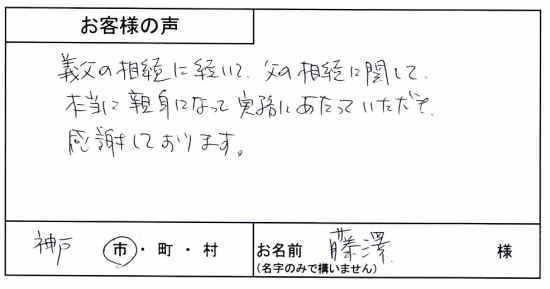 お客様の声
義父の相続に続いて、父の相続に関して、
本当に親身になって実務にあたっていただき、
感謝しております。
神戸 市・町・村 お名前 藤澤 様
(名字のみで構いません)